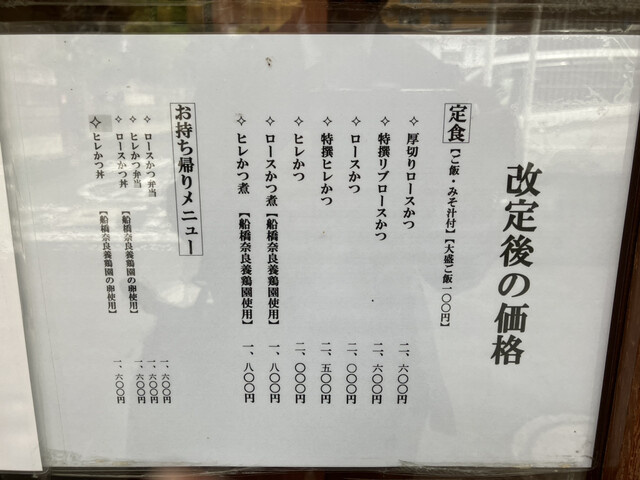 改定後の価格
定食【ご飯・みそ汁付】【大盛ご飯一〇〇円】
✧ 厚切りロースかつ 二、六〇〇円
✧ 特撰リブロースかつ 二、六〇〇円
✧ ロースかつ 二、〇〇〇円
✧ 特撰ヒレかつ 二、五〇〇円
✧ ヒレかつ 二、〇〇〇円
✧ ロースかつ煮【船橋奈良養鶏園使用】 一、八〇〇円
✧ ヒレかつ煮【船橋奈良養鶏園使用】 一、八〇〇円
お持ち帰りメニュー
✧ ロースかつ弁当 一、六〇〇円
✧ ヒレかつ弁当 一、六〇〇円
✧ ロースかつ丼【船橋奈良養鶏園の卵使用】 一、六〇〇円
✧ ヒレかつ丼【船橋奈良養鶏園の卵使用】 一、六〇〇円